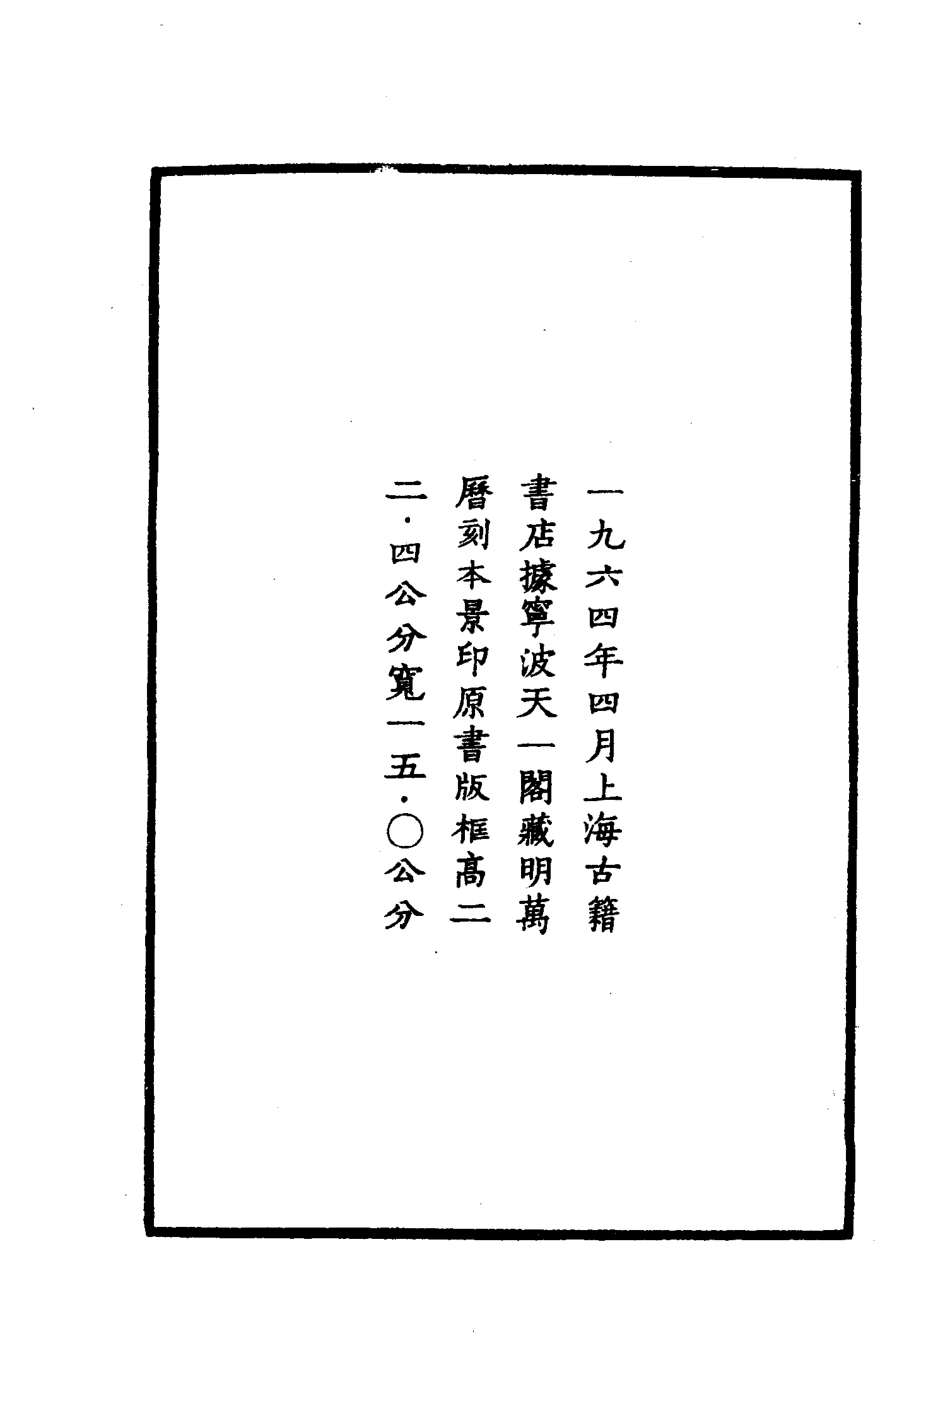 一九六四年四月上海古籍
書店據寧波天一閣藏明萬
曆刻本景印原書版框高二
二·四公分寬一五·〇公分